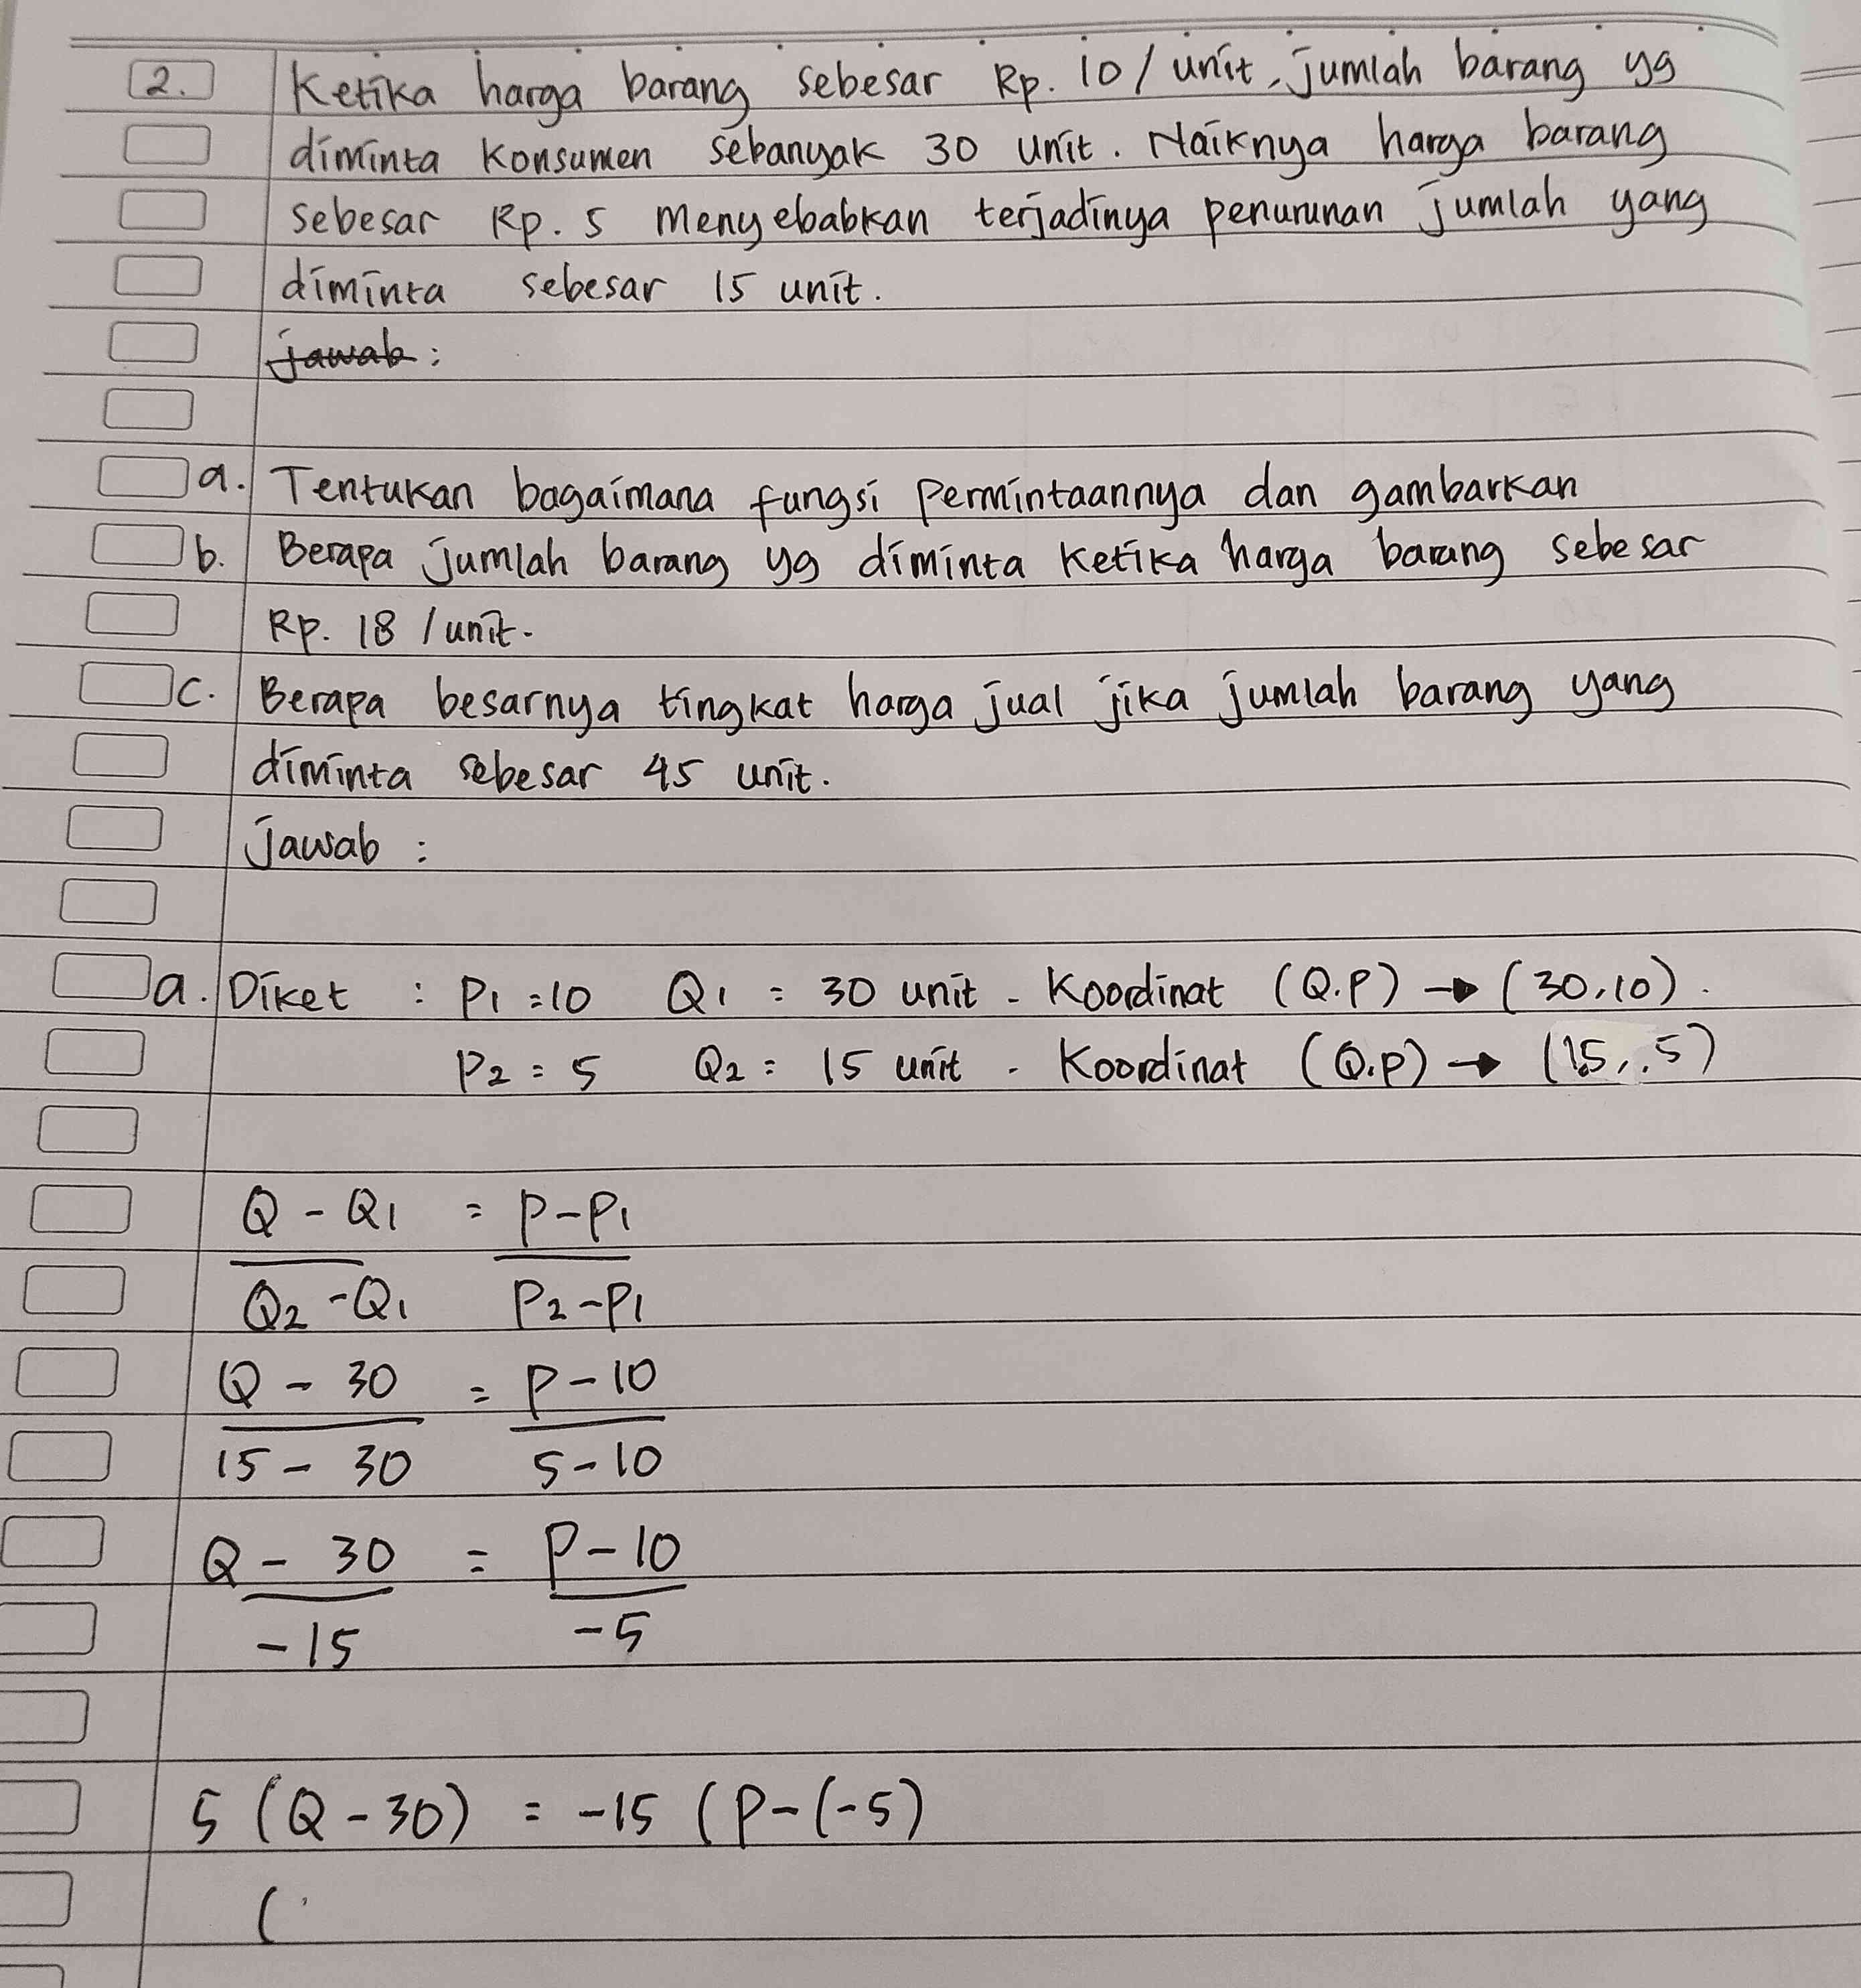 2. Ketika harga barang sebesar Rp. 10/unit, jumlah barang yg
diminta konsumen sebanyak 30 unit. Naiknya harga barang
sebesar Rp. 5 menyebabkan terjadinya penurunan jumlah yang
diminta sebesar 15 unit.
jawab :
a. Tentukan bagaimana fungsi permintaannya dan gambarkan
b. Berapa jumlah barang yg diminta ketika harga barang sebesar
Rp. 18 /unit.
c. Berapa besarnya tingkat harga jual jika jumlah barang yang
diminta sebesar 45 unit.
Jawab :
a. Diket : P1 =10 Q1 = 30 unit - Koordinat (Q.P) → (30,10).
P2 = 5 Q2 = 15 unit - Koordinat (Q.P) → (15,.5)
Q - Q1 = P-P1
Q2 -Q1 P2-P1
Q - 30 = P-10
15 - 30 5-10
Q - 30 = P-10
-15 -5
5 (Q-30) = -15 (P-(-5)
(